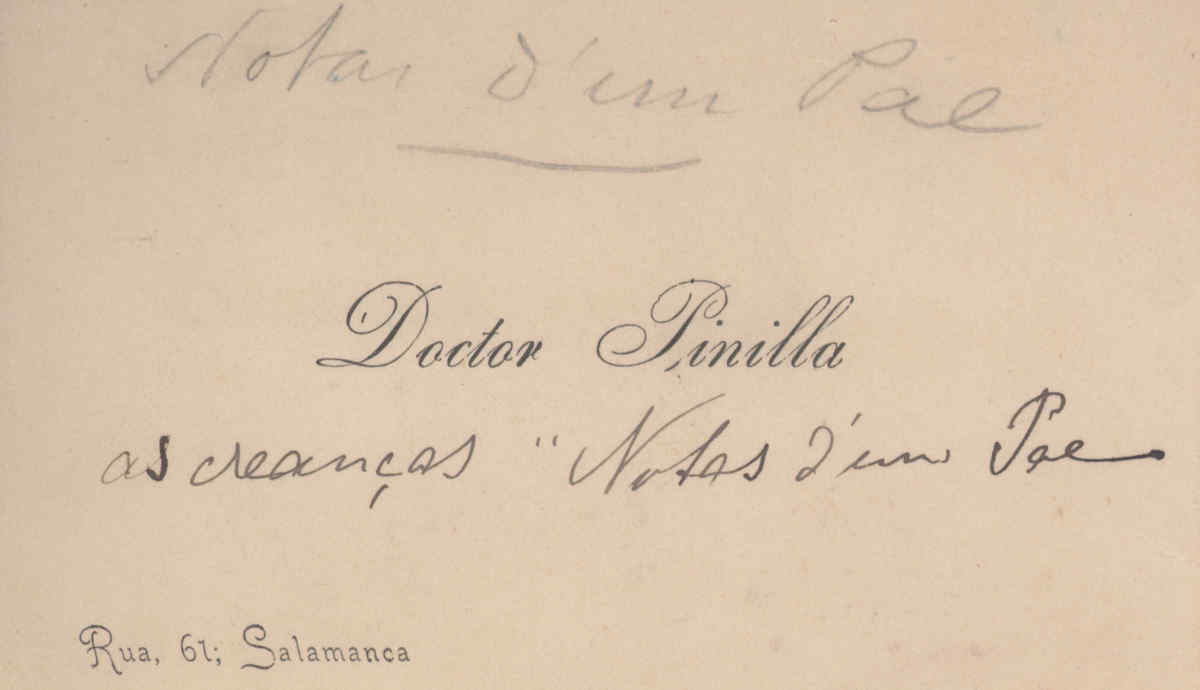 Notas d'um Pae
Doctor Pinilla
as creanças "Notas d'um Pae
Rua, 61; Salamanca